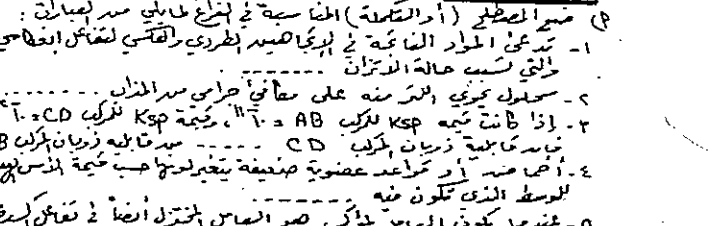 ٢) ضع المصطلح (أو التكملة) المناسبة في الفراغ لما يلي من العبارات :
١- تدعى المواد الناتجة في الإتجاهين الطردي والعكسي لتفاعل
والتي تسبب حالة الاتزان -------
٢- محلول يحوي اللتر منه على مكافئ جرامي من المذاب ........
٣- إذا كانت قيمة Ksp للمركب AB = ١٠ ، وقيمة Ksp للمركب CD = ١٠
فإن قابلية ذوبان المركب CD ----- من قابلية ذوبان المركب B
٤- أحماض أو قواعد عضوية ضعيفة يتغير لونها حسب قيمة الأس
للوسط الذي تكون فيه -------
٥- عندما يكون العامل المؤكسد هو العامل المختزل أيضاً في تفاعل